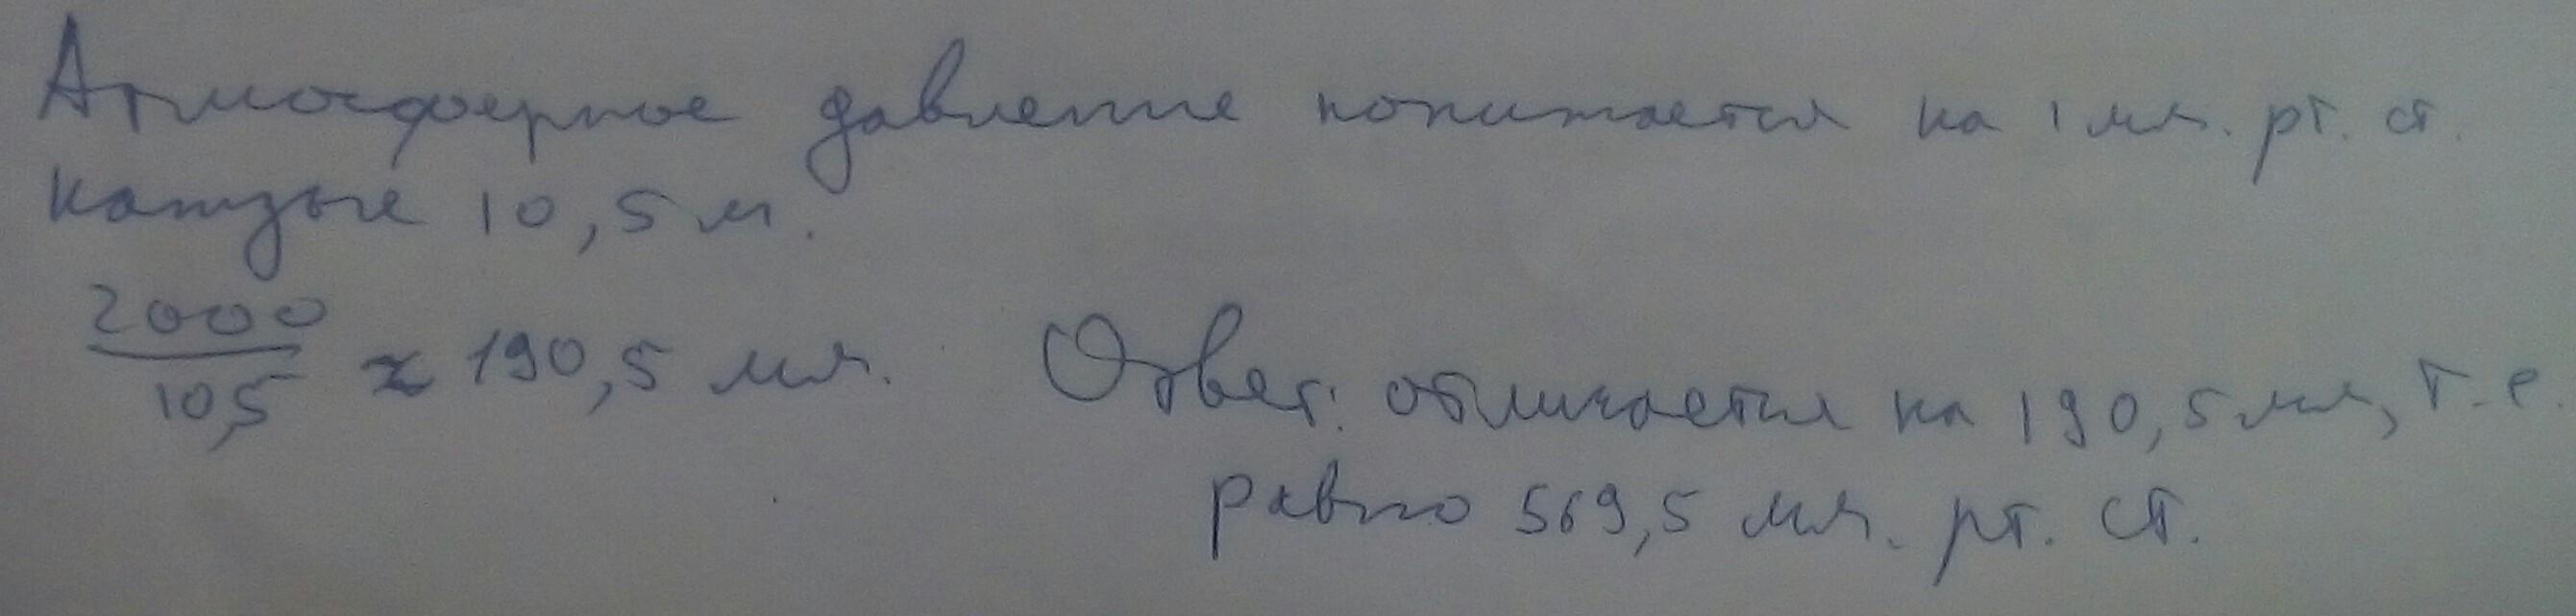 Атмосферное давление понижается на 1 мм. рт. ст.
каждые 10,5 м.
2000
10,5
≈ 190,5 мм.
Ответ: отличается на 190,5 мм, т.е.
равно 569,5 мм. рт. ст.